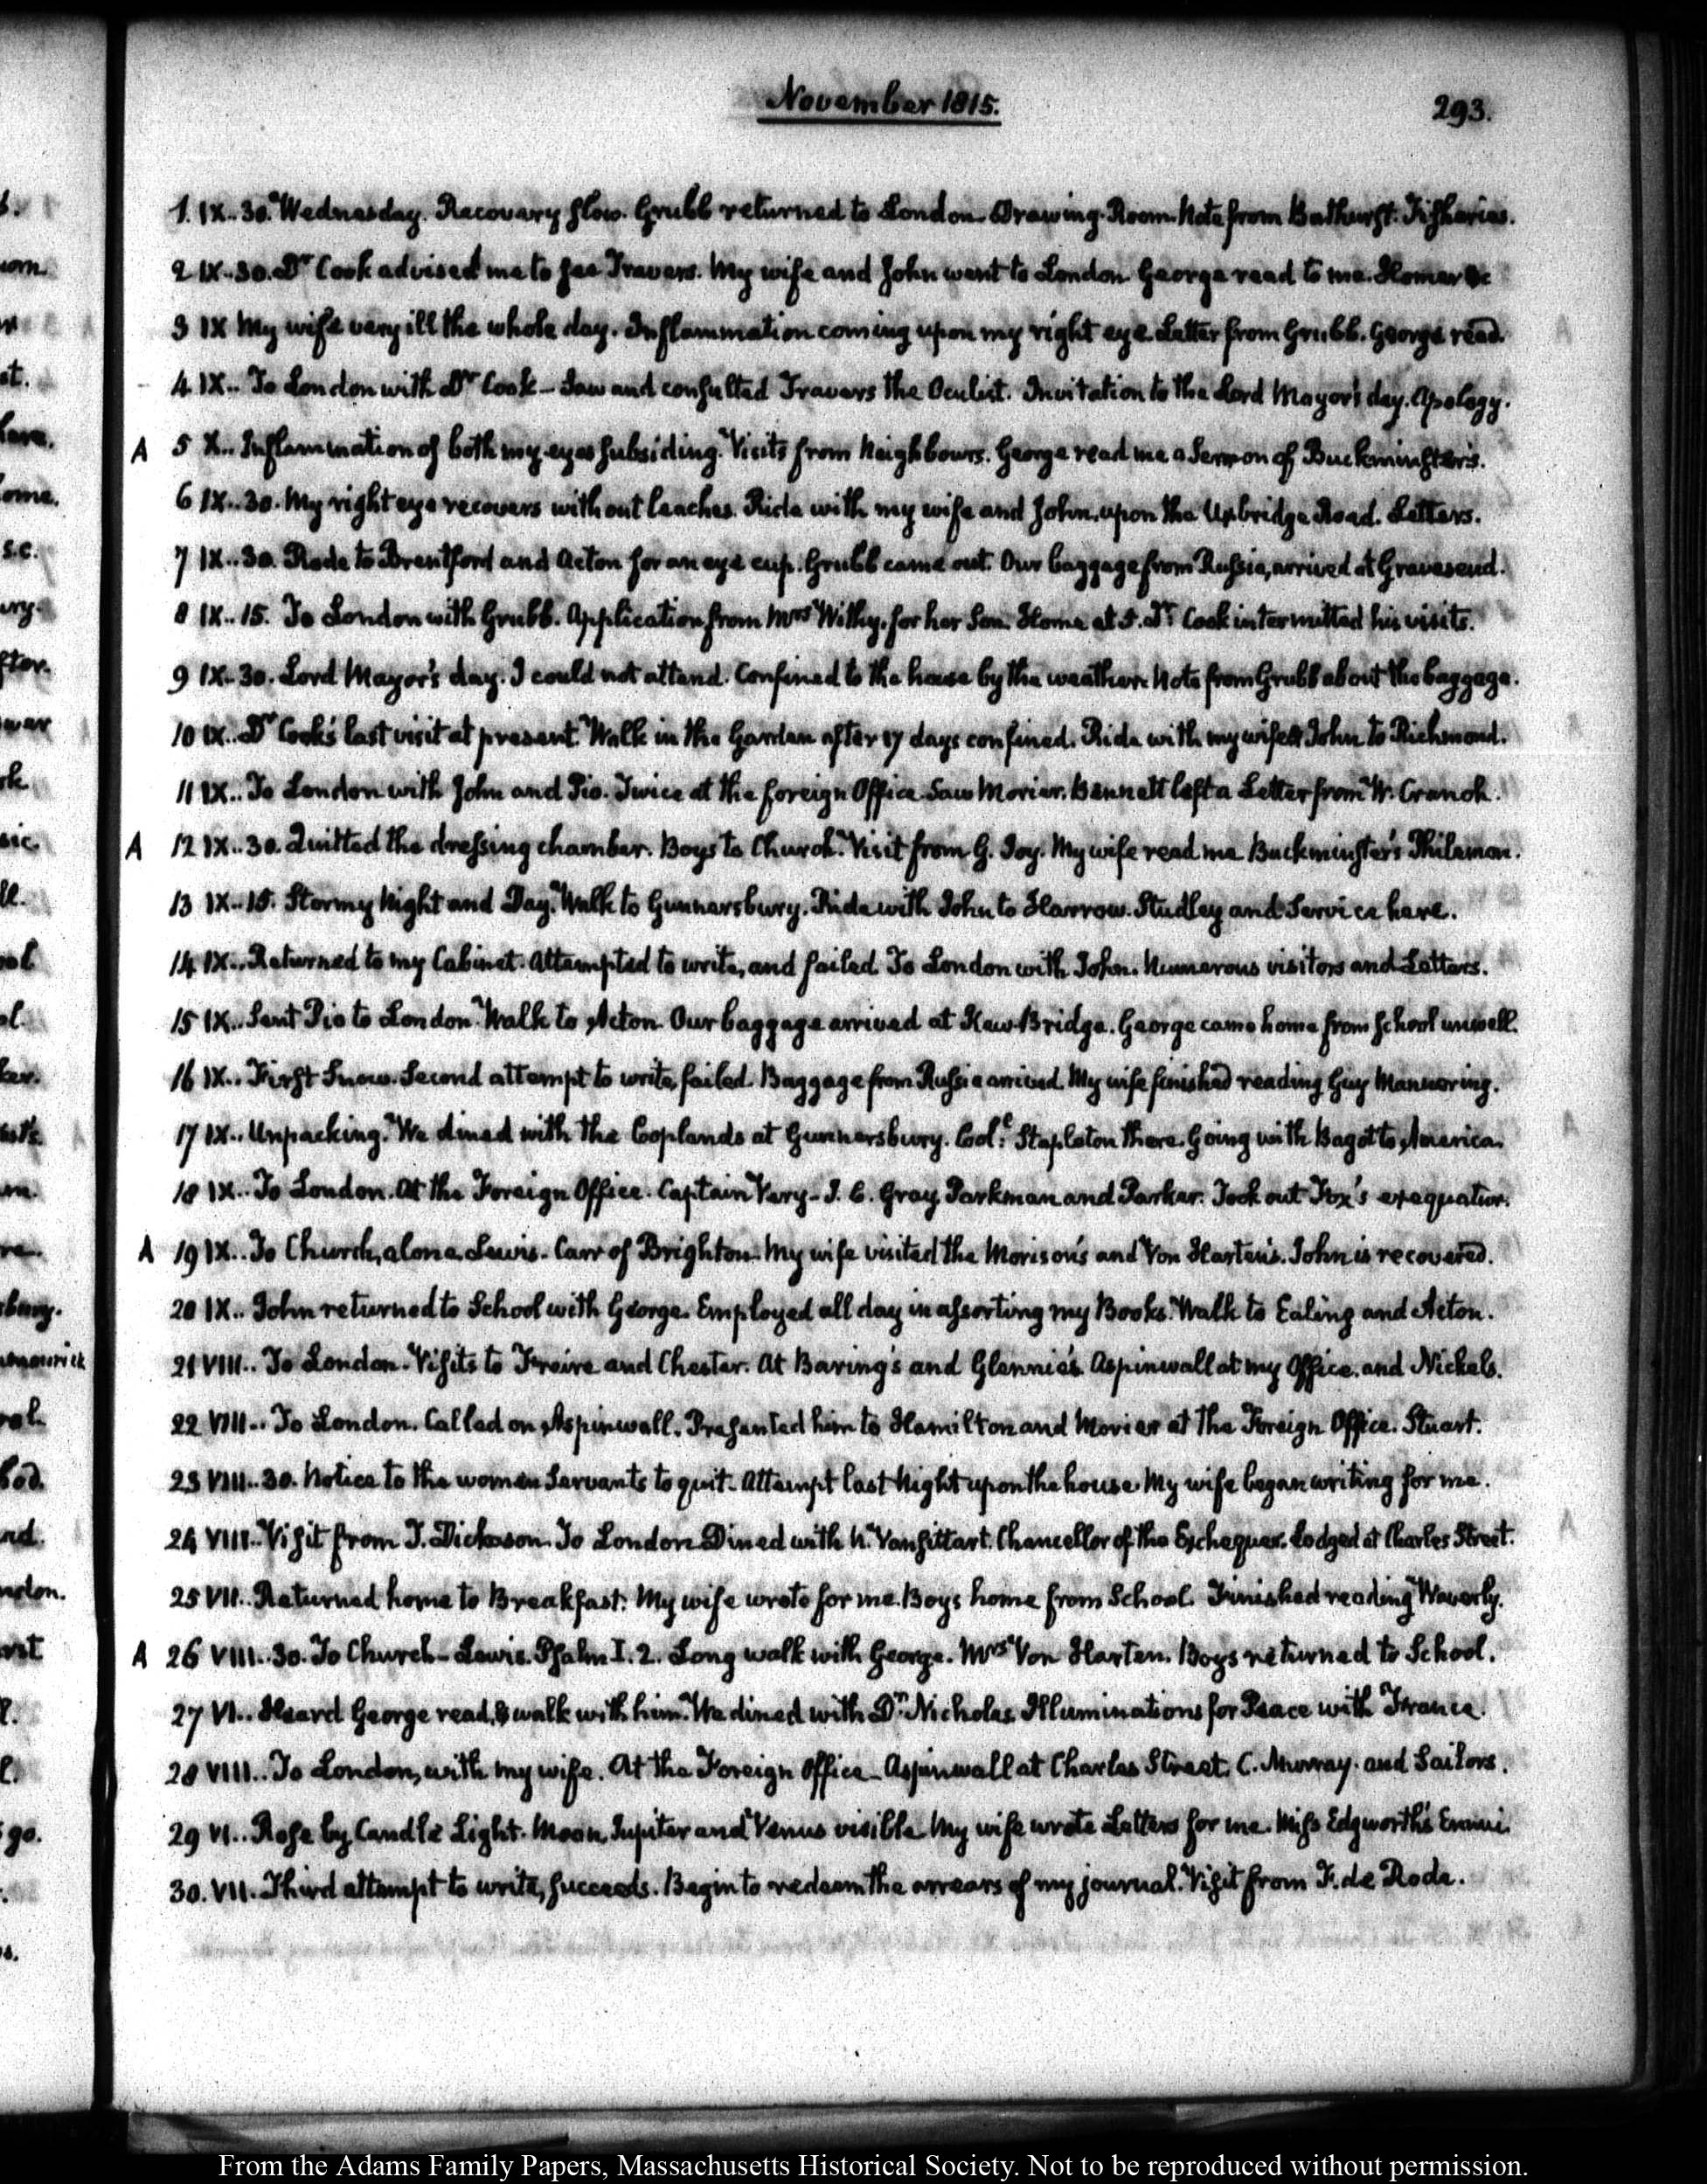 November 1815.
293.
1. IX..30. Wednesday. Recovery slow. Grubb returned to London. Drawing-Room. Note from Bathurst. Fisheries.
2 IX..30. Dr Cook advised me to see Travers. My wife and John went to London. George read to me. Homer &c
3 IX My wife very ill the whole day. Inflammation coming upon my right eye. Letter from Grubb. George read.
4 IX.. To London with Dr Cook – Saw and consulted Travers the Oculist. Invitation to the Lord Mayor's day. Apology.
A 5 X.. Inflammation of both my eyes subsiding. Visits from Neighbours. George read me a Sermon of Buckminster's.
6 IX..30. My right eye recovers without leaches. Ride with my wife and John, upon the Uxbridge Road. Letters.
7 IX..30. Rode to Brentford and Acton for an eye cup. Grubb came out. Our baggage from Russia, arrived at Gravesend.
8 IX..15. To London with Grubb. Application from Mrs Withy, for her Son. Home at 5. Dr Cook intermitted his visits.
9 IX..30. Lord Mayor's day. I could not attend. Confined to the house by the weather. Note from Grubb about the baggage.
10 IX.. Dr Cook's last visit at present. Walk in the Garden after 17 days confined. Ride with my wife & John to Richmond.
11 IX.. To London with John and Pio. Twice at the foreign Office. Saw Morier. Bennett left a Letter from W. Cranch.
A 12 IX..30. Quitted the dressing chamber. Boys to Church. Visit from G. Joy. My wife read me Buckminster's Philemon.
13 IX..15. Stormy Night and Day. Walk to Gunnersbury. Ride with John to Harrow. Studley and Service here.
14 IX.. Returned to my Cabinet. Attempted to write, and failed. To London with John. Numerous visitors and Letters.
15 IX.. Sent Pio to London. Walk to Acton. Our baggage arrived at Kew-Bridge. George came home from School unwell.
16 IX.. First Snow. Second attempt to write, failed. Baggage from Russia arrived. My wife finished reading Guy Mannering.
17 IX.. Unpacking. We dined with the Coplands at Gunnersbury. Coll. Stapleton there. Going with Bagot to America.
18 IX.. To London. At the Foreign Office. Captain Very – J. C. Gray, Parkman and Parker. Took out Fox's exequatur.
A 19 IX.. To Church, alone. Lewis – Carr of Brighton. My wife visited the Morison's and Von Harten's. John is recovered.
20 IX.. John returned to School with George. Employed all day in assorting my Books. Walk to Ealing and Acton.
21 VIII.. To London. Visits to Freire and Chester. At Baring's and Glennie's. Aspinwall at my Office, and Nickels.
22 VIII.. To London. Called on Aspinwall. Presented him to Hamilton and Morier at the Foreign Office. Stuart.
23 VIII..30. Notice to the women Servants to quit. Attempt last Night upon the house. My wife began writing for me.
24 VIII.. Visit from J. Dickason. To London. Dined with N. Vansittart. Chancellor of the Exchequer. Lodged at Charles Street.
25 VII.. Returned home to Breakfast. My wife wrote for me. Boys home from School. Finished reading Waverly.
A 26 VIII..30. To Church – Lewis. Psalm I. 2. Long walk with George. Mrs Von Harten. Boys returned to School.
27 VI.. Heard George read, & walk with him. We dined with Dr Nicholas. Illuminations for Peace with France.
28 VIII.. To London, with my wife. At the Foreign Office – Aspinwall at Charles Street. C. Murray. and Sailors.
29 VI.. Rose by Candle Light. Moon, Jupiter and Venus visible. My wife wrote Letters for me. Miss Edgworth's Ennui.
30. VII. Third attempt to write, succeeds. Begin to redeem the arrears of my journal. Visit from F. de Rode.
From the Adams Family Papers, Massachusetts Historical Society. Not to be reproduced without permission.